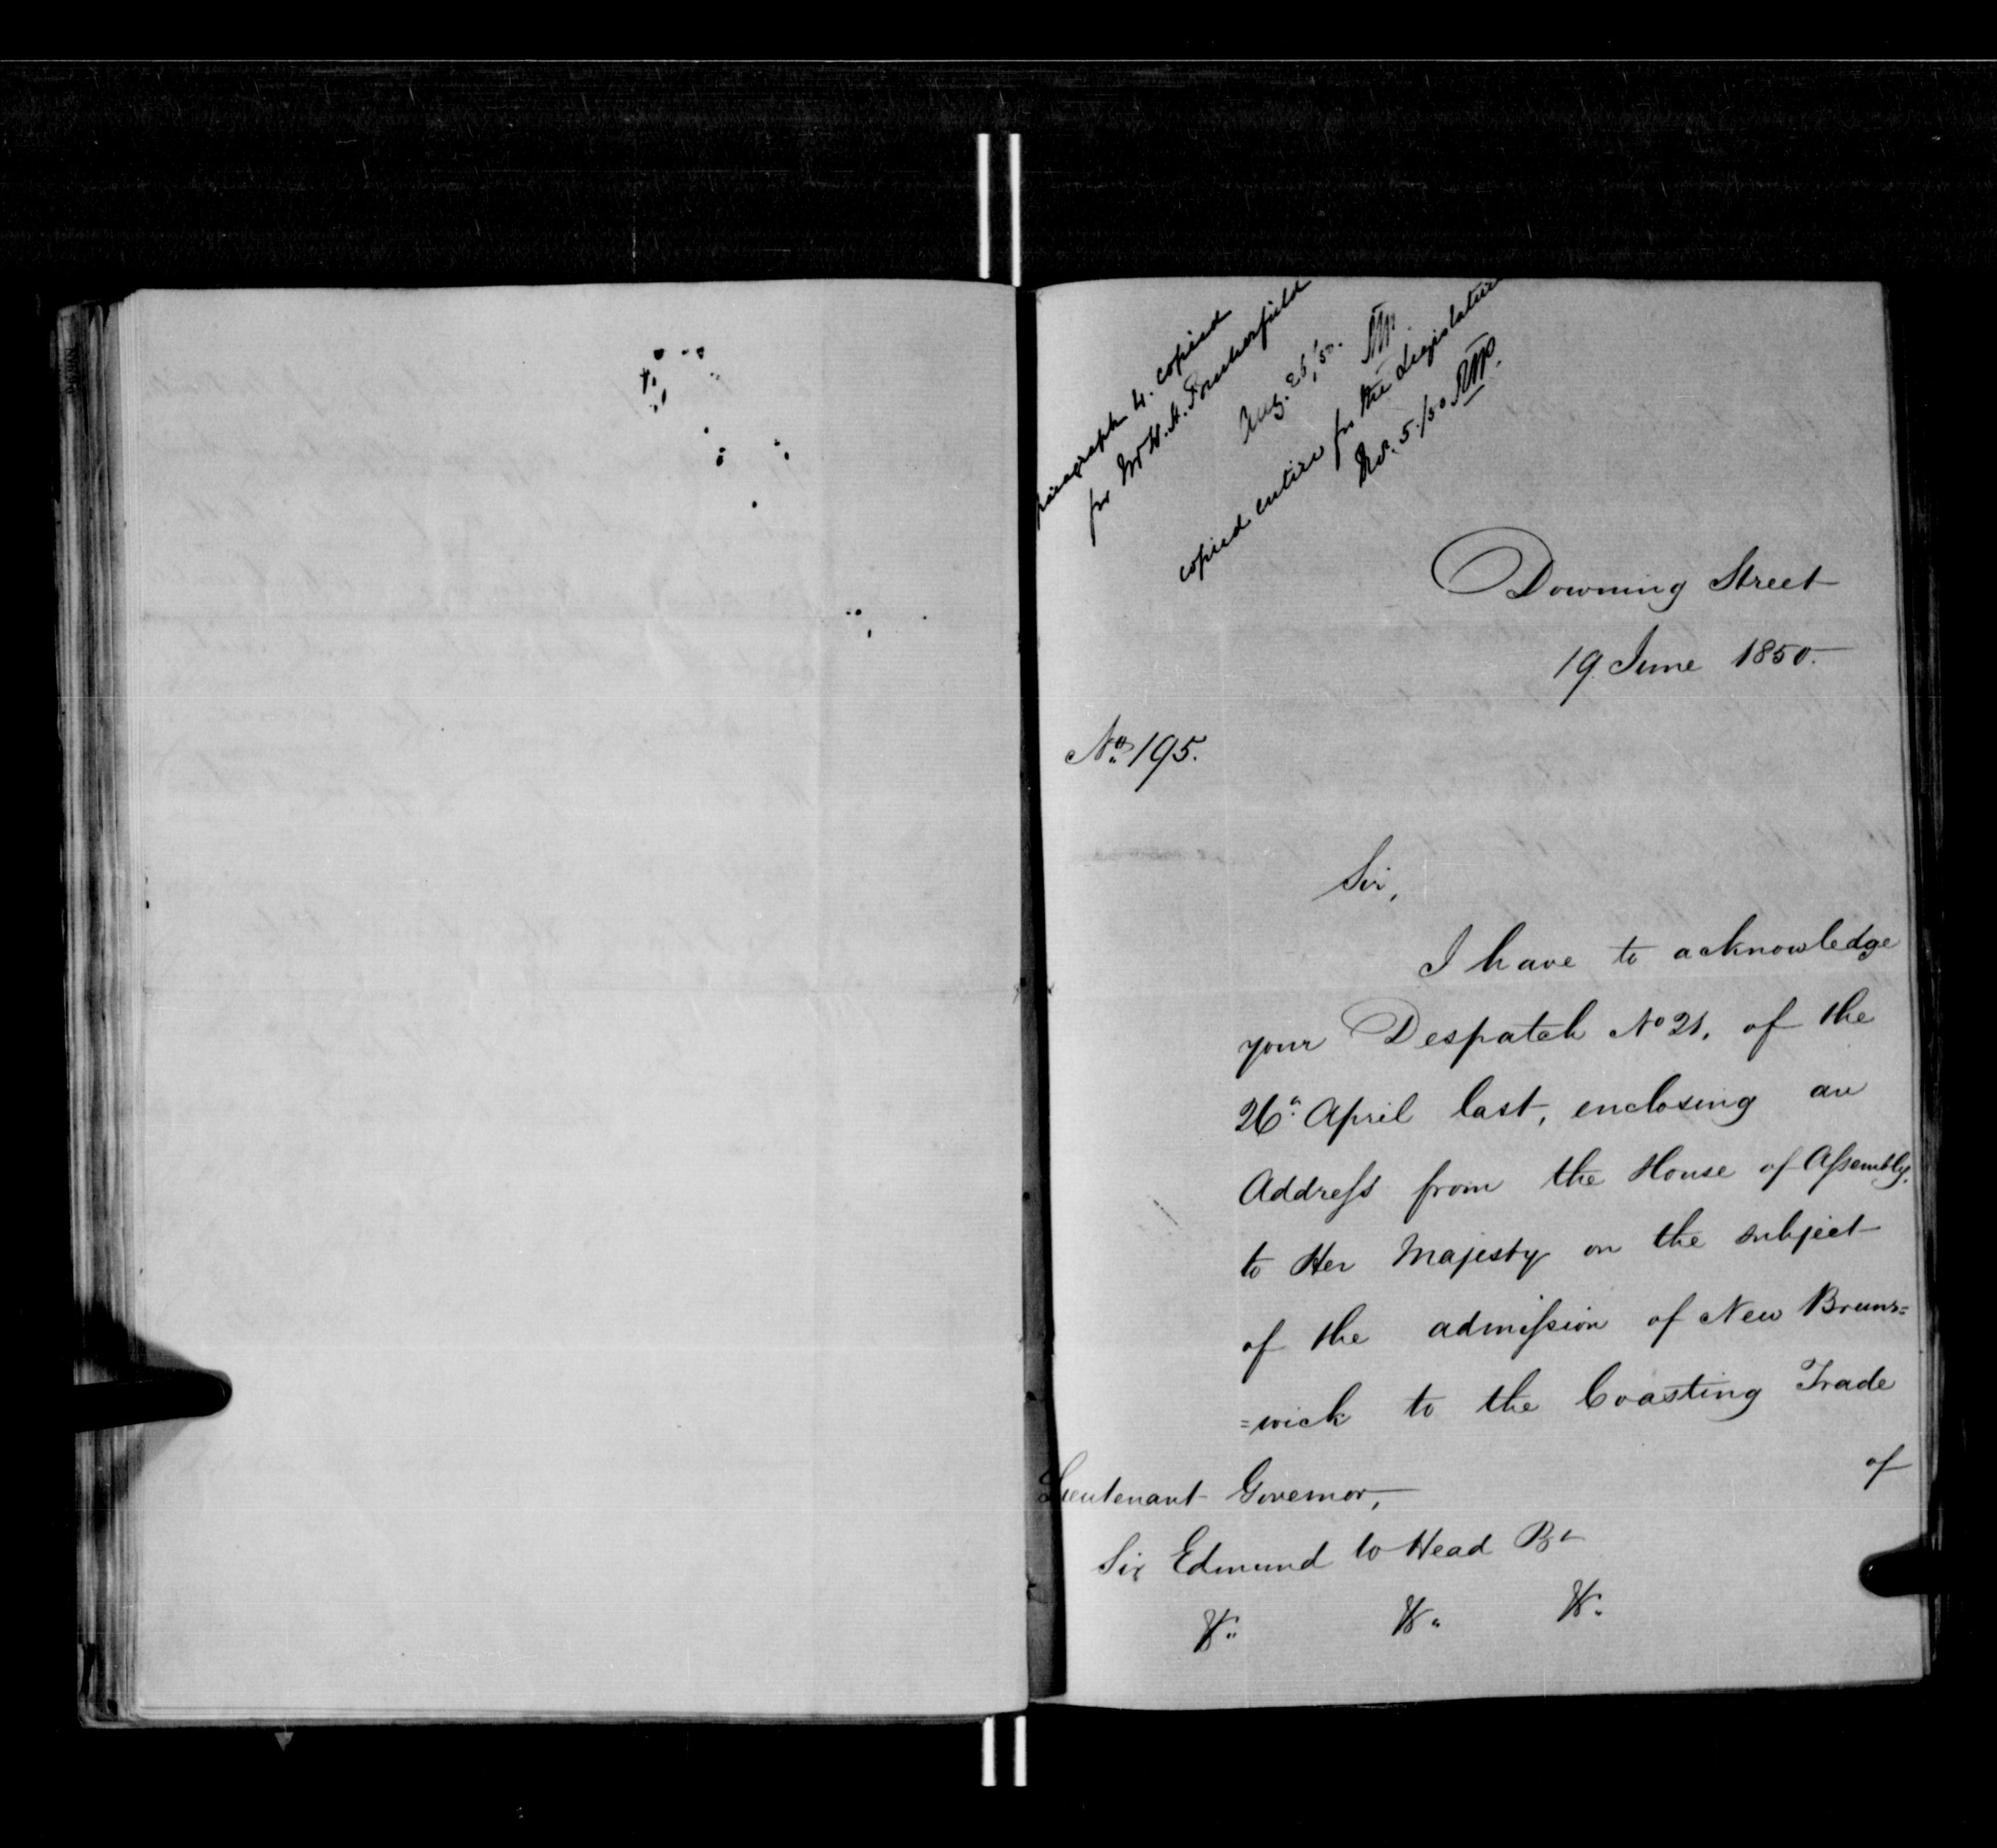 paragraph 4. copied
for Mr H. A.
Aug. 26/50.
copied entire for the Legislature
5./50
Downing Street
19 June 1850.
No. 195.
Sir,
I have to acknowledge
your Despatch No 21, of the
26th April last, enclosing an
Address from the House of Assembly,
to Her Majesty on the subject
of the admission of New Bruns=
=wick to the Coasting Trade
of
Lieutenant Governor,
Sir Edmund W Head Bt
&c. &c. &c.